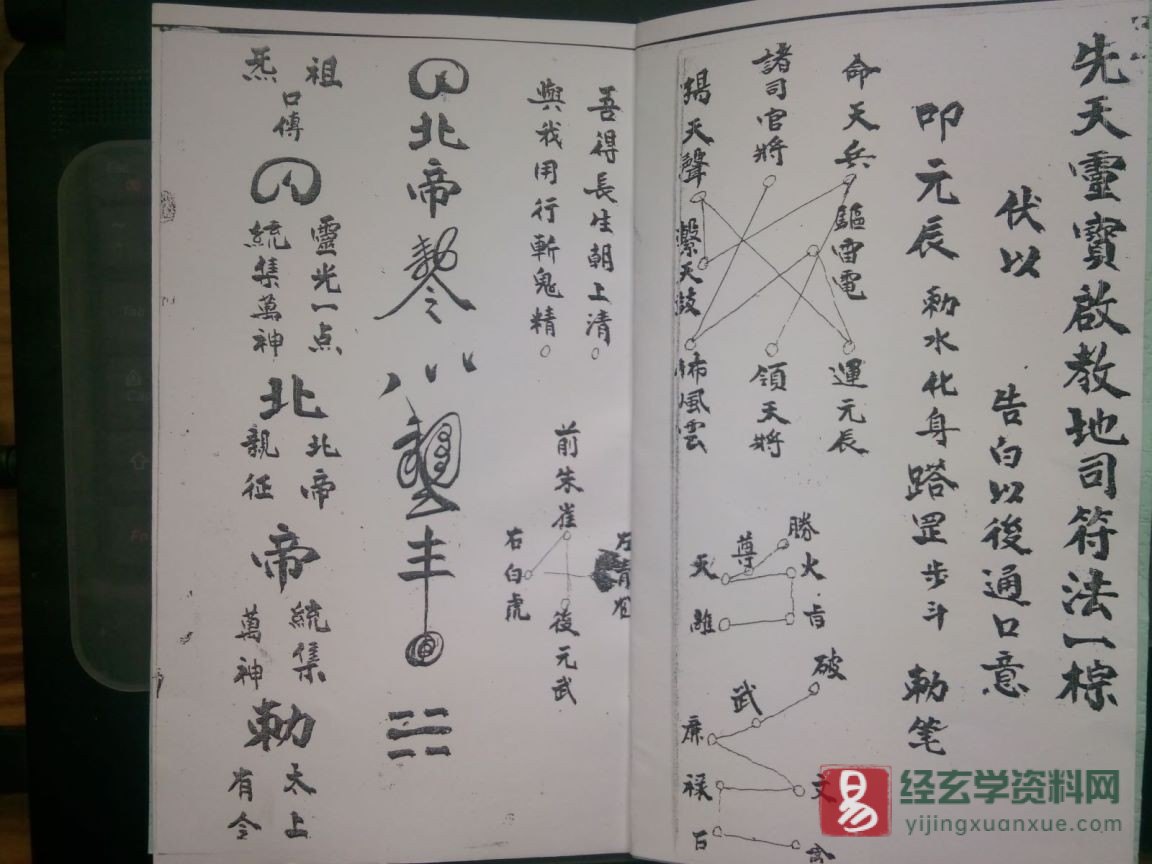 先天靈寶啟教地司符法一棕
伏以 告白以後通口意
叩元辰 勅水化身踏罡步斗 勅笔
命天兵 驅雷電 運元辰
諸司官將 領天將
揭天聲 擊天鼓 佈風雲
勝
尊
火
天
破
武
廉
文
禄
吾得長生朝上清
與我用行斬鬼精
前朱雀
右白虎
左青
後元武
北帝勅
祖炁
口傳
靈光一点
統集萬神
北
北帝
親征
帝
統集
萬神
勅
太上
有令
经玄学资料网
yijingxuanxue.com
易